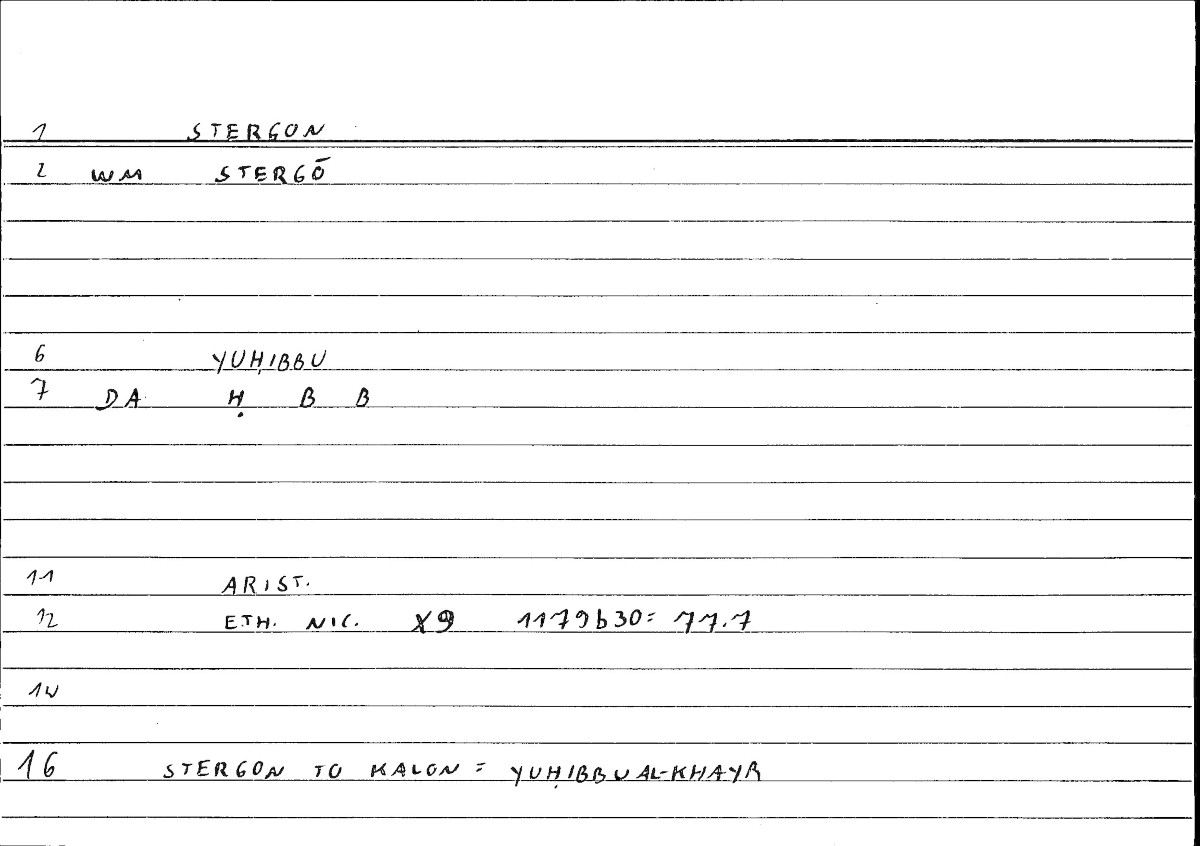 1 STERGON
2 WM STERGŌ
6 YUḤIBBU
7 DA Ḥ B B
11 ARIST.
12 ETH. NIC. X9 1179b30= 77.7
14
16 STERGON TO KALON = YUḤIBBU AL-KHAYR